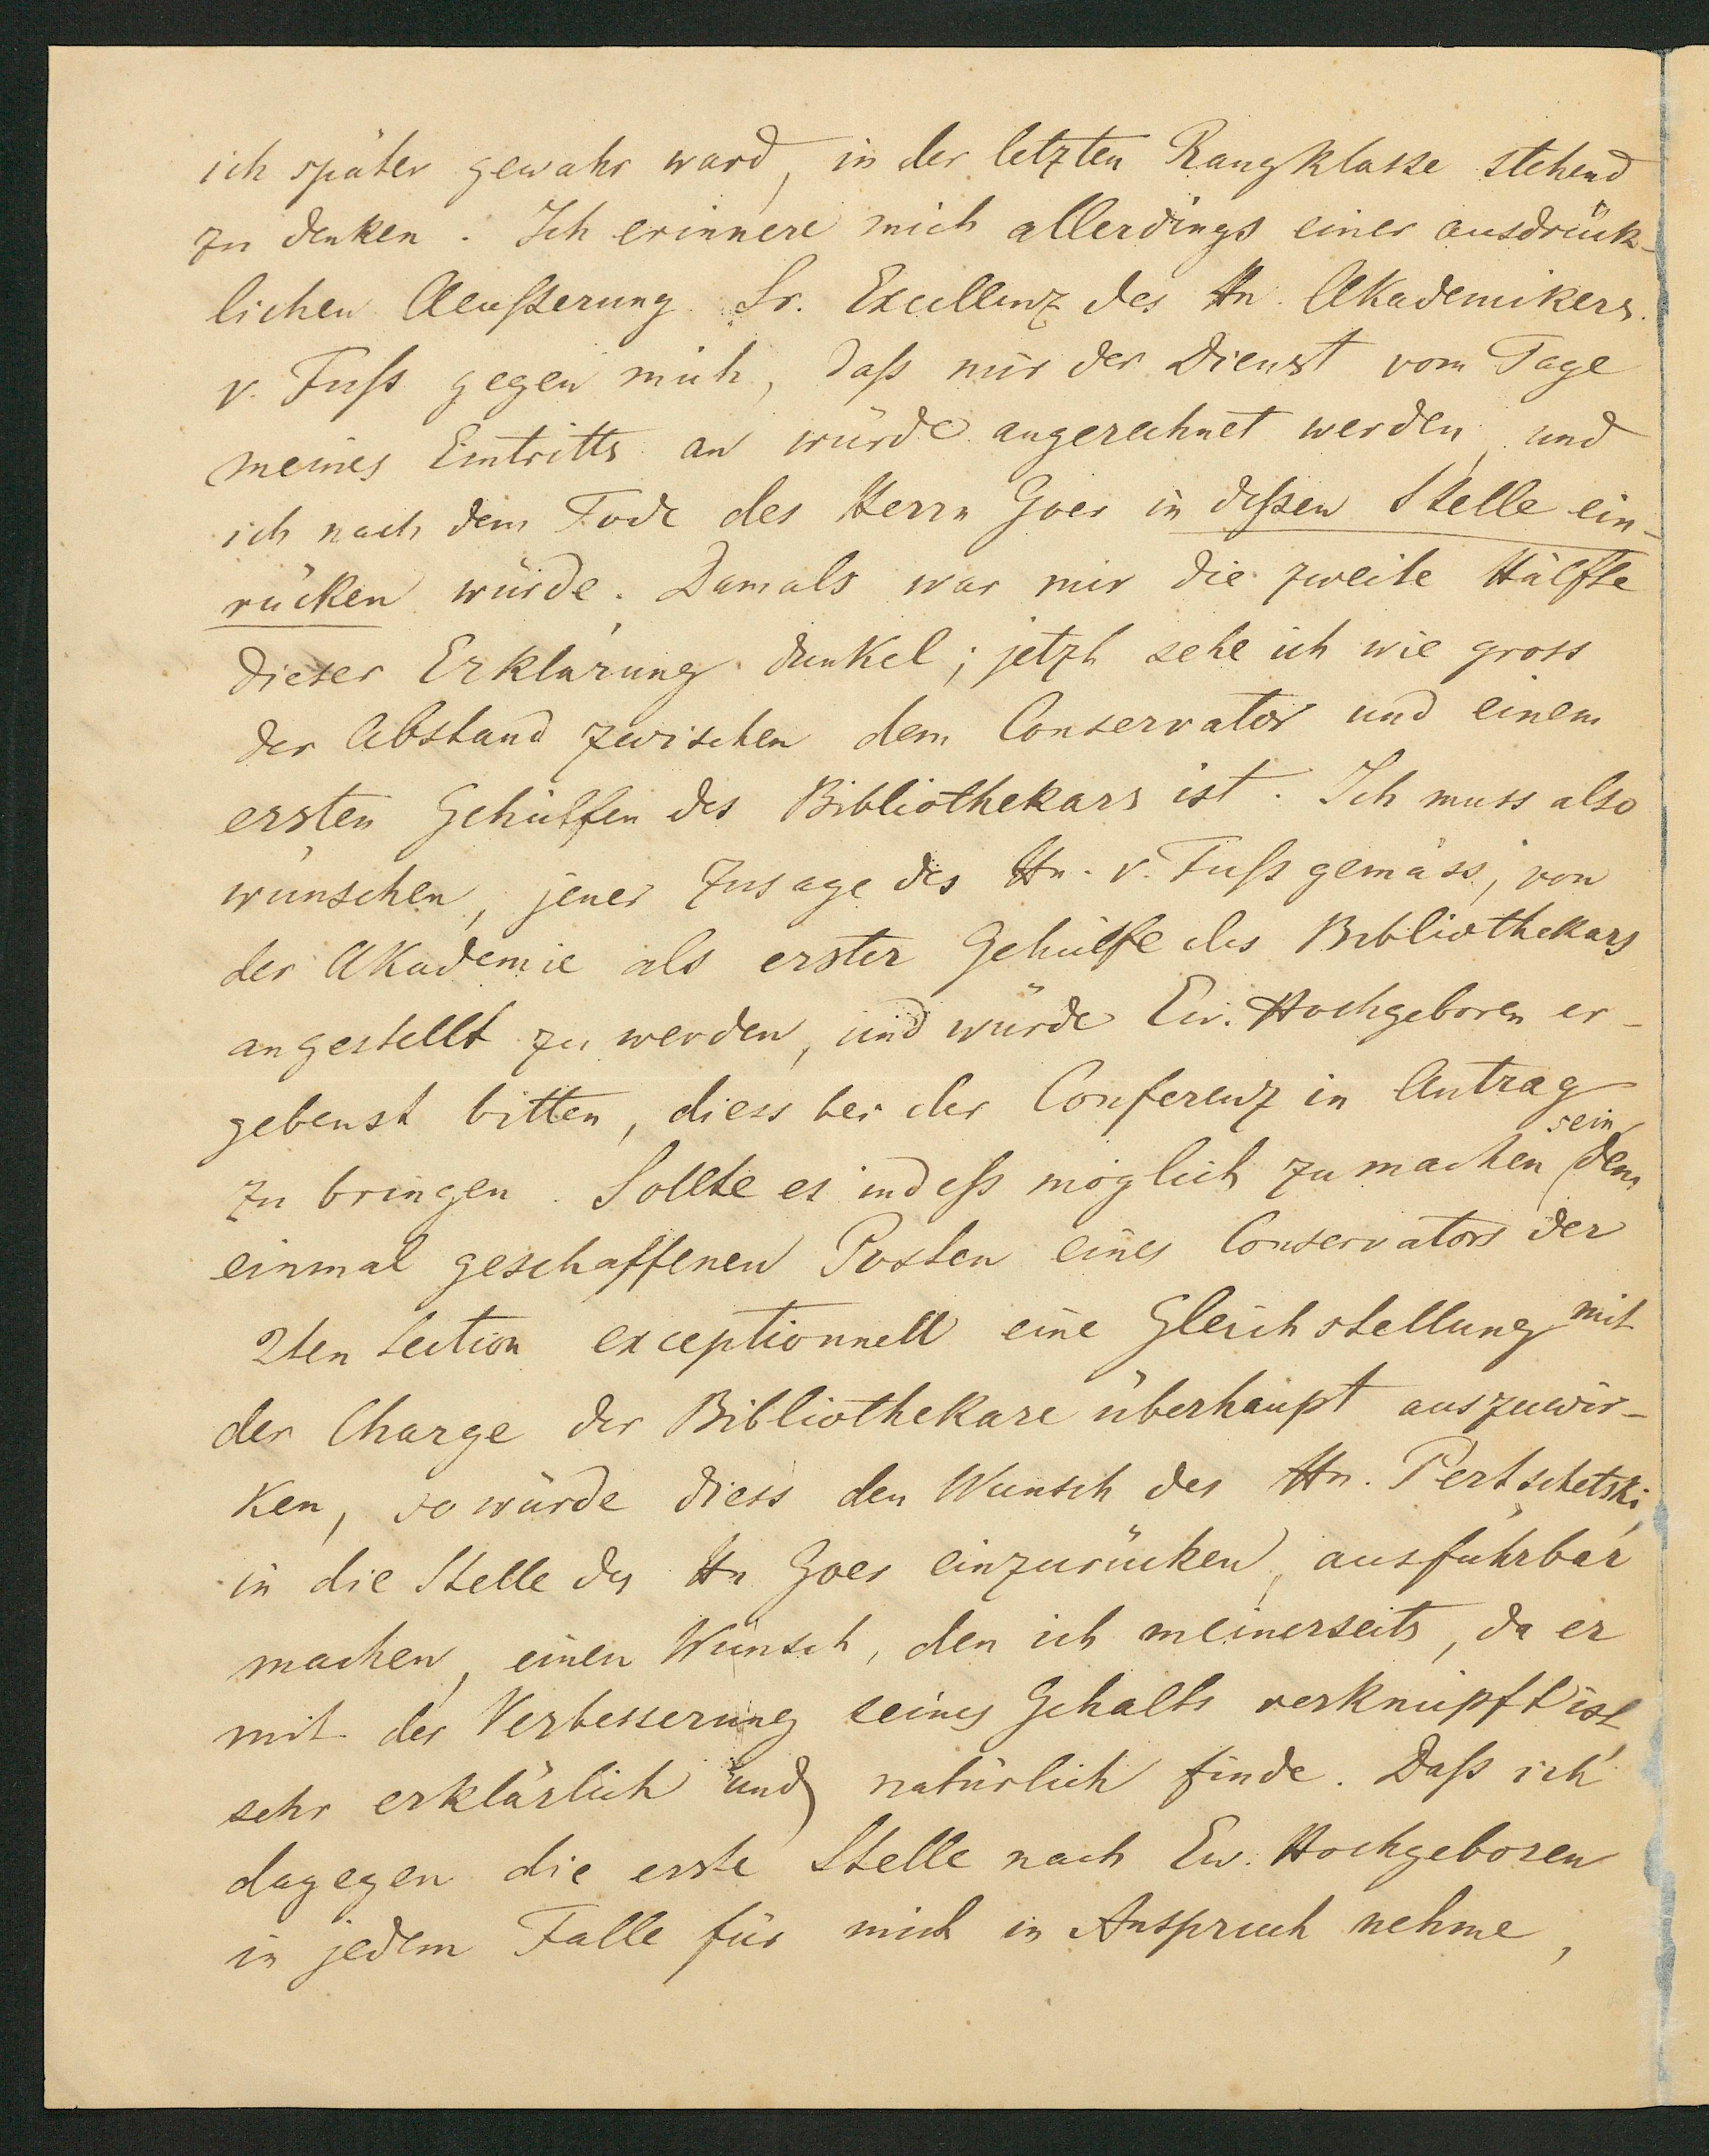 ich später gewahr ward, in der letzten Rangklasse stehend
zu denken. Ich erinnere mich allerdings einer ausdrück-
lichen Aeußerung Sr. Excellenz des Hn. Akademikers
v. Fuß gegen mich, daß mir der Dienst vom Tage
meines Eintritts an würde angerechnet werden, und
ich nach dem Tode des Herrn Goes in deßen Stelle ein-
rücken würde. Damals war mir die zweite Hälfte
dieser Erklärung dunkel; jetzt sehe ich wie gross
der Abstand zwischen dem Conservator und einem
ersten Gehülfen des Bibliothekars ist. Ich muss also
wünschen, jener Zusage des Hn. v. Fuß gemäss, von
der Akademie als erster Gehülfe des Bibliothekars
angestellt zu werden, und würde Ew. Hochgeboren er-
gebenst bitten, diess bei der Conferenz in Antrag
zu bringen. Sollte es indeß möglich zu machen sein, dem
einmal geschaffenen Posten eines Conservators der
2ten Section exceptionnell eine Gleichstellung mit
der Charge der Bibliothekare überhaupt auszuwir-
ken, so würde diess den Wunsch des Hn. Pertschetski,
in die Stelle des Hn Goes einzurücken, ausführbar
machen, einen Wunsch, den ich meinerseits, da er
mit der Verbesserung seines Gehalts verknüpft ist,
sehr erklärlich und natürlich finde. Daß ich
dagegen die erste Stelle nach Ew. Hochgeboren
in jedem Falle für mich in Anspruch nehme,